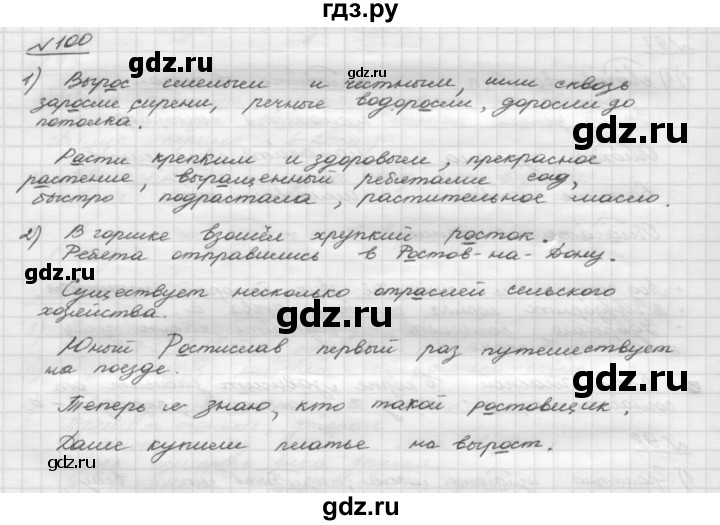 гдз.ру
№100
1) Вырос смелым и честным, шли сквозь
заросли сирени, речные водоросли, доросли до
потолка.
Расти крепким и здоровым, прекрасное
растение, выращенный ребятами сад,
быстро подрастала, растительное масло.
2) В горшке взошёл хрупкий росток.
Ребята отправились в Ростов-на-Дону.
Существует несколько отраслей сельского
хозяйства.
Юный Ростислав первый раз путешествует
на поезде.
Теперь я знаю, кто такой ростовщик.
Даше купили платье на вырост.
gdz.ru
gdz.ru
gdz.ru
gdz.ru
gdz.ru
gdz.ru
gdz.ru
gdz.ru